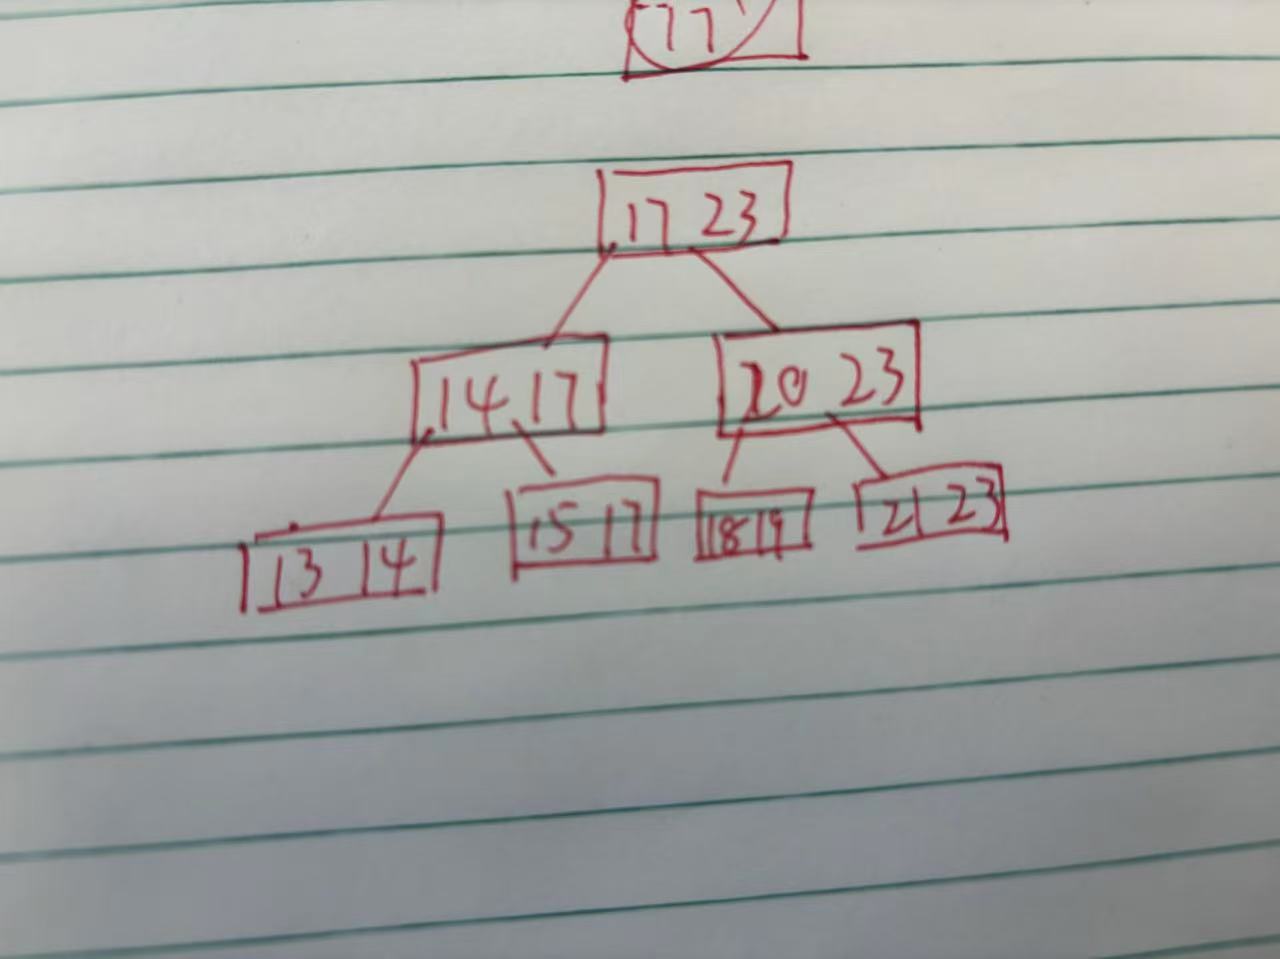 77
17 23
14 17 20 23
13 14 15 17 18 19 21 23